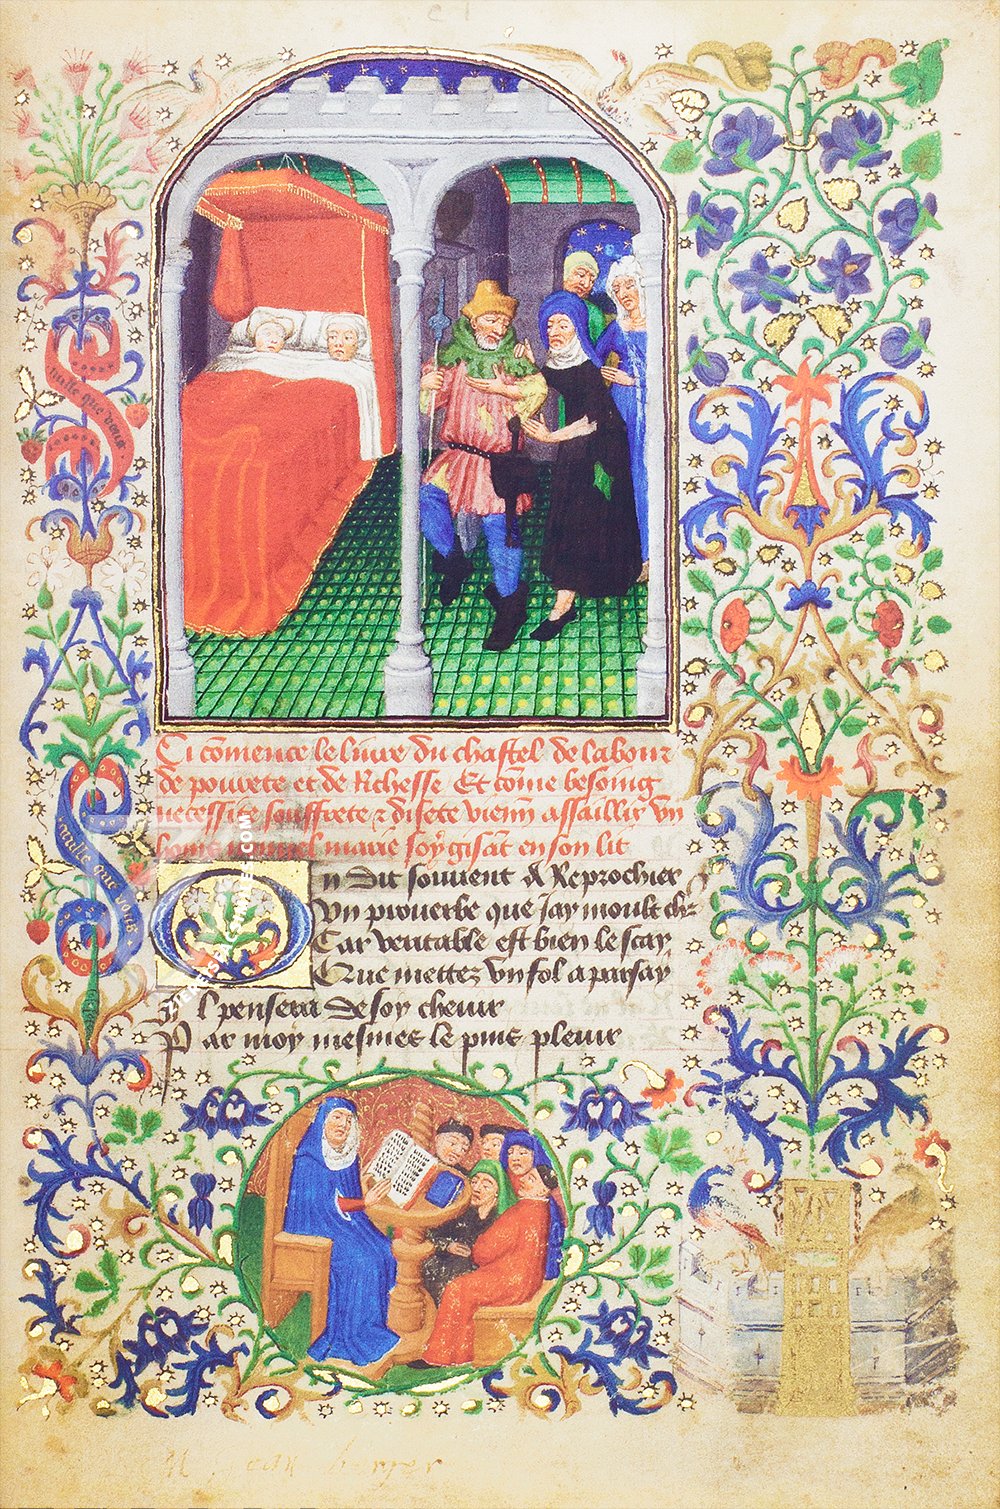 Ci cõmence le liure du chastel de labour
de pourete et de Richesse Et cõme besoing
necessite souffrete ⁊ disete vienñ assaillir vn
home nouuel marie soy gisãt en son lit
On dit souuent A Reprochier
Vn prouerbe que Jay moult chr
Car veritable est bien le scay
Que mettez vn fol apar say
Il pensera de soy cheuir
Par moy mesmes le puis pleuir
nulle que vous
nulle que vous